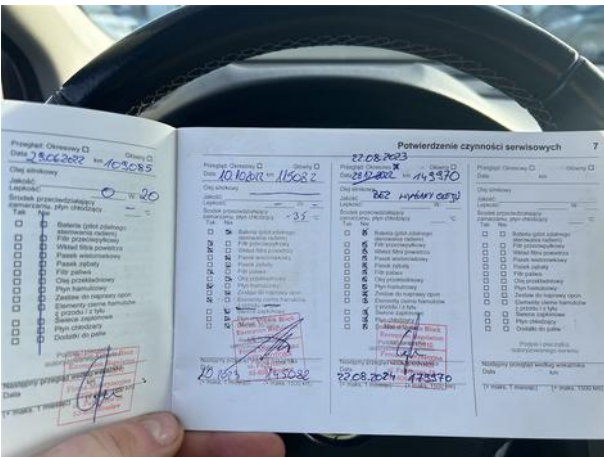 Potwierdzenie czynności serwisowych 7
Przegląd: Okresowy Główny
Data 29.06.2022 km 109,085
Olej silnikowy
Jakość:
Lepkość: 0 W 20
Środek przeciwdziałający
zamarzaniu, płyn chłodzący - °C
Tak Nie
Bateria (pilot zdalnego
sterowania radiem)
Filtr przeciwpyłkowy
Wkład filtra powietrza
Pasek wielorowkowy
Pasek zębaty
Filtr paliwa
Olej przekładniowy
Płyn hamulcowy
Zestaw do naprawy opon
Elementy cierne hamulców
z przodu i z tyłu
Świece zapłonowe
Płyn chłodzący
Dodatki do paliw
Następny przegląd
Data
(+ maks. 1 miesiąc)
Przegląd: Okresowy Główny
Data 10.10.2022 km 115082
Olej silnikowy
Jakość:
Lepkość: - W -
Środek przeciwdziałający
zamarzaniu, płyn chłodzący -35 °C
Tak Nie
Bateria (pilot zdalnego
sterowania radiem)
Filtr przeciwpyłkowy
Wkład filtra powietrza
Pasek wielorowkowy
Pasek zębaty
Filtr paliwa
Olej przekładniowy
Płyn hamulcowy
Zestaw do naprawy opon
Elementy cierne hamulców
z przodu i z tyłu
Świece zapłonowe
Płyn chłodzący
Następny
145082
22.08.2023
Przegląd: Okresowy Główny
Data km 143970
Olej silnikowy
Jakość: BEZ WYMIANY OLEJU
Lepkość: W
Środek przeciwdziałający
zamarzaniu, płyn chłodzący °C
Tak Nie
Bateria (pilot zdalnego
sterowania radiem)
Filtr przeciwpyłkowy
Wkład filtra powietrza
Pasek wielorowkowy
Pasek zębaty
Filtr paliwa
Olej przekładniowy
Płyn hamulcowy
Zestaw do naprawy opon
Elementy cierne hamulców
z przodu i z tyłu
Świece zapłonowe
Płyn chłodzący
Dodatki do paliw
Następny przegląd
22.08.2024 173970
(+ maks. 1 miesiąc)
Przegląd: Okresowy Główny
Data km
Olej silnikowy
Jakość:
Lepkość: W
Środek przeciwdziałający
zamarzaniu, płyn chłodzący °C
Tak Nie
Bateria (pilot zdalnego
sterowania radiem)
Filtr przeciwpyłkowy
Wkład filtra powietrza
Pasek wielorowkowy
Pasek zębaty
Filtr paliwa
Olej przekładniowy
Płyn hamulcowy
Zestaw do naprawy opon
Elementy cierne hamulców
z przodu i z tyłu
Świece zapłonowe
Płyn chłodzący
Dodatki do paliw
Podpis i pieczątka
autoryzowanego serwisu
Następny przegląd według wskaźnika
Data km
(+ maks. 1 miesiąc) (+ maks. 1500 km)